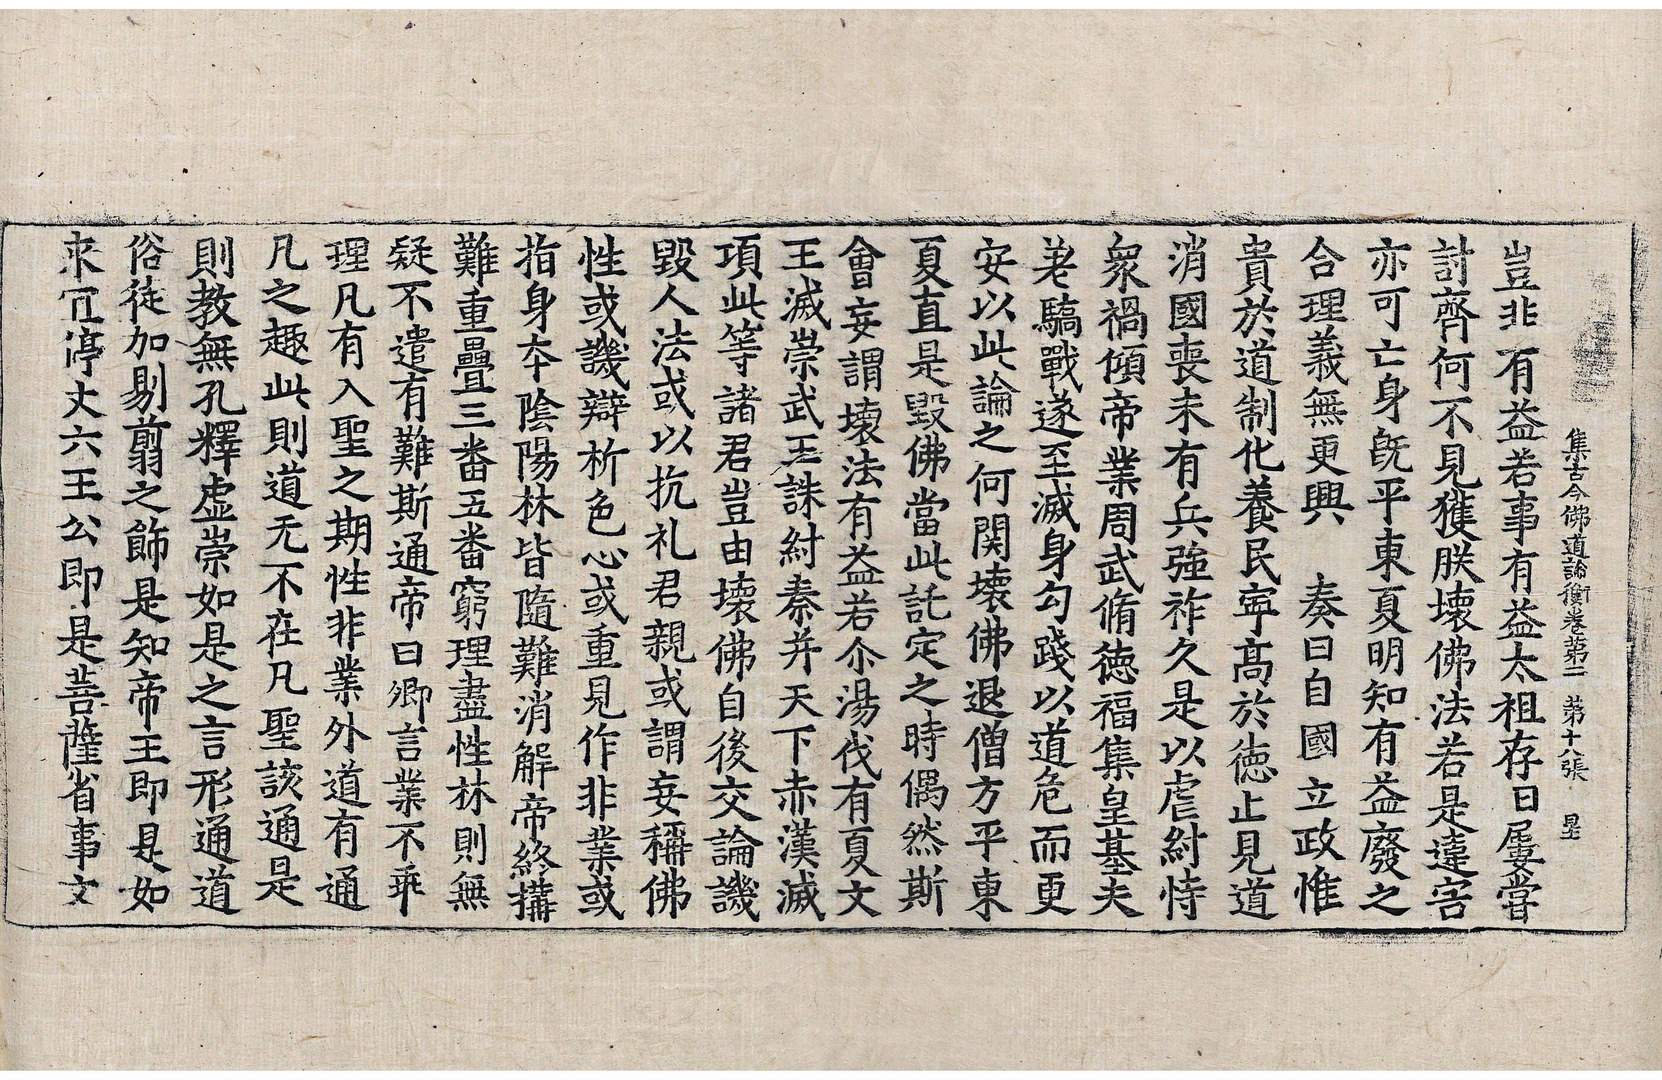 集古今佛道論衡卷第二　第十八張　㠯
豈非有益若事有益太祖存日屢嘗
討齊何不見獲朕壞佛法若是違害
亦可亡身旣平東夏明知有益廢之
合理義無更興　奏曰自國立政惟
貴於道制化養民寧髙於徳止見道
消國喪未有兵強祚久是以虐紂恃
衆禍傾帝業周武脩徳福集皇基夫
差驕戰遂至滅身勾踐以道危而更
安以此論之何関壞佛退僧方平東
夏直是毀佛當此託定之時偶然斯
會妄謂壞法有益若尒湯伐有夏文
王滅崇武王誅紂秦并天下赤漢滅
項此等諸君豈由壞佛自後交論譏
毀人法或以抗礼君親或謂妄稱佛
性或譏辯析色心或重見作非業或
指身夲陰陽林皆隨難消解帝終搆
難重疊三番五番窮理盡性林則無
疑不遣有難斯通帝曰卿言業不乖
理凡有入聖之期性非業外道有通
凡之趣此則道无不在凡聖該通是
則教無孔釋虚崇如是之言形通道
俗徒加剔翦之飾是知帝王即是如
来冝停丈六王公即是菩薩省事文